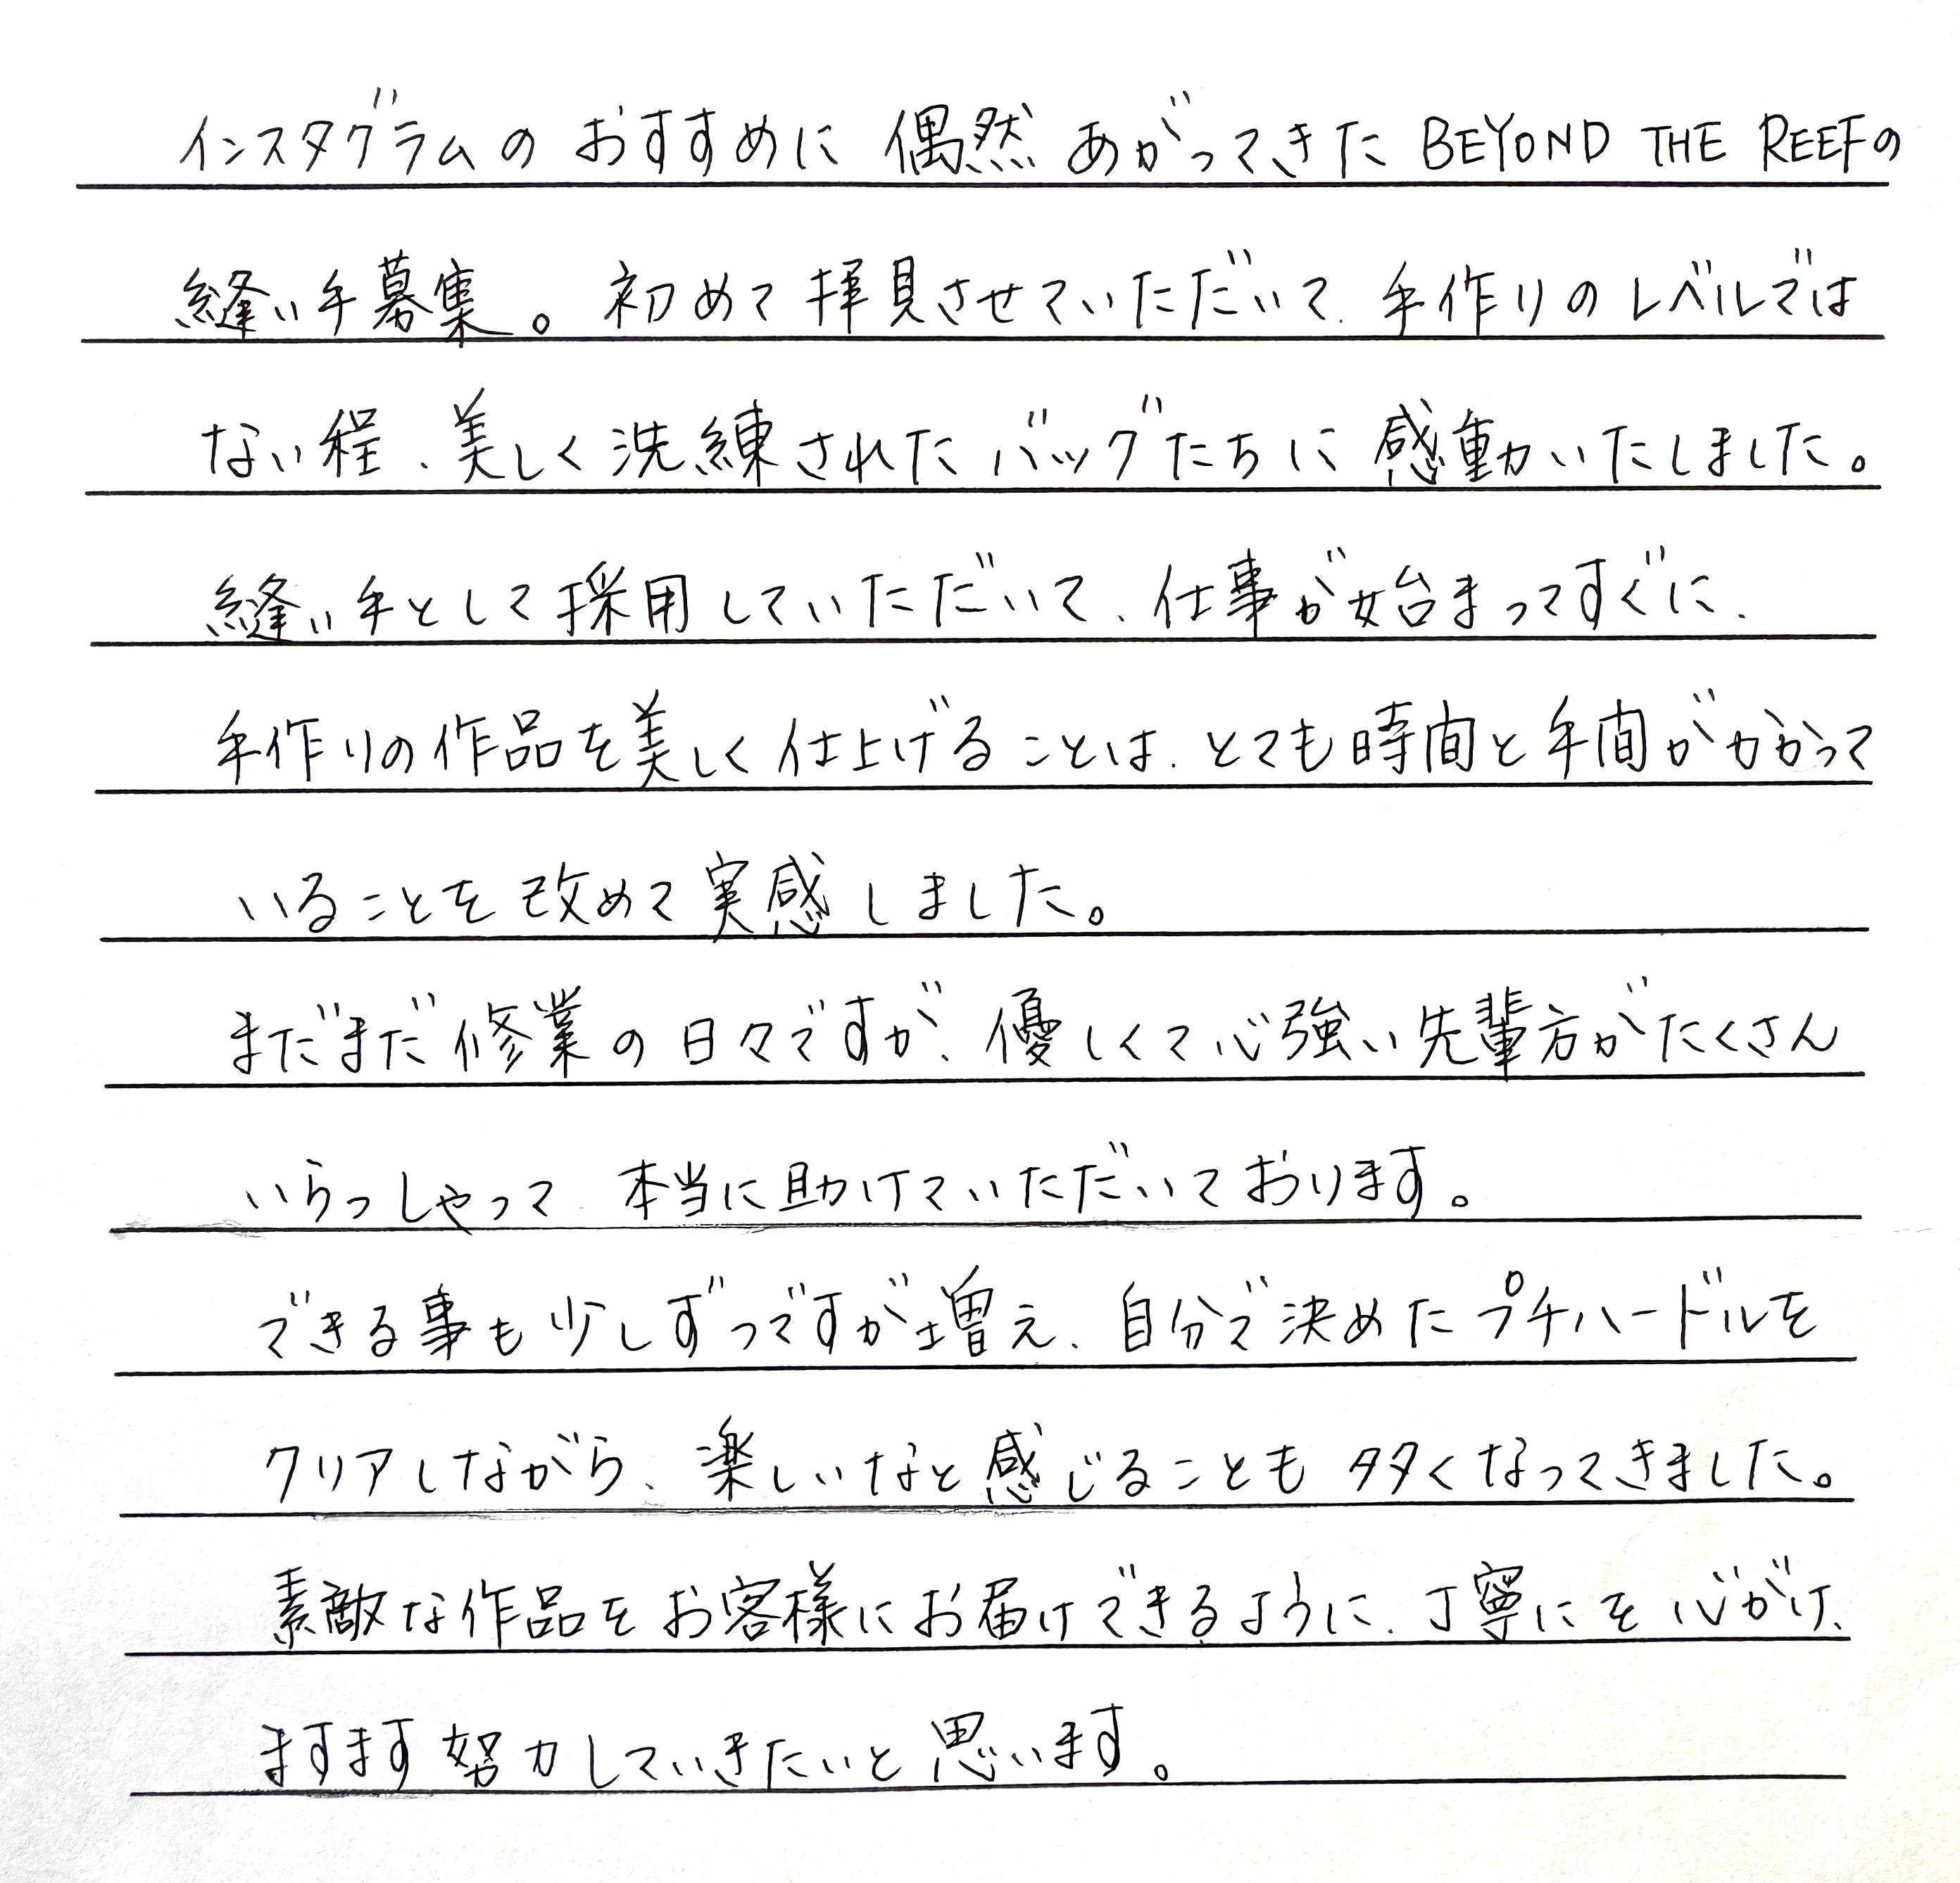 インスタグラムのおすすめに偶然あがってきたBEYOND THE REEFの
縫い手募集。初めて拝見させていただいて、手作りのレベルでは
ない程、美しく洗練されたバッグたちに感動いたしました。
縫い手として採用していただいて、仕事が始まってすぐに、
手作りの作品を美しく仕上げることは、とても時間と手間がかかって
いることを改めて実感しました。
まだまだ修業の日々ですが、優しくて心強い先輩方がたくさん
いらっしゃって、本当に助けていただいております。
できる事も少しずつですが増え、自分で決めたプチハードルを
クリアしながら、楽しいなと感じることも多くなってきました。
素敵な作品をお客様にお届けできるように、丁寧にを心がけ、
ますます努力していきたいと思います。